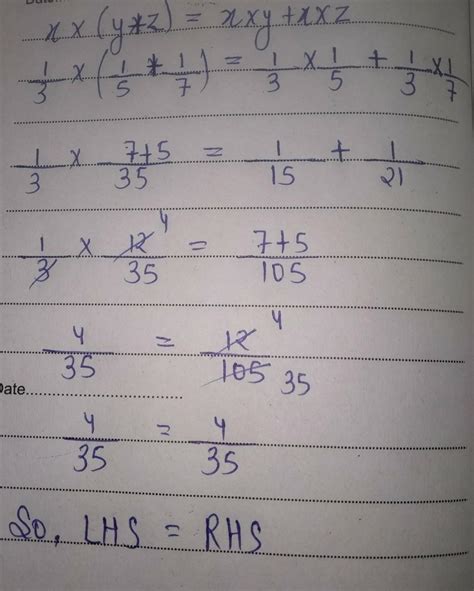 x × (y + z) = x × y + x × z
1/3 × (1/5 + 1/7) = 1/3 × 1/5 + 1/3 × 1/7
1/3 × 7+5/35 = 1/15 + 1/21
1/3 × 12/35 4 = 7+5/105
4/35 = 12/105 4 35
Date
4/35 = 4/35
So, LHS = RHS